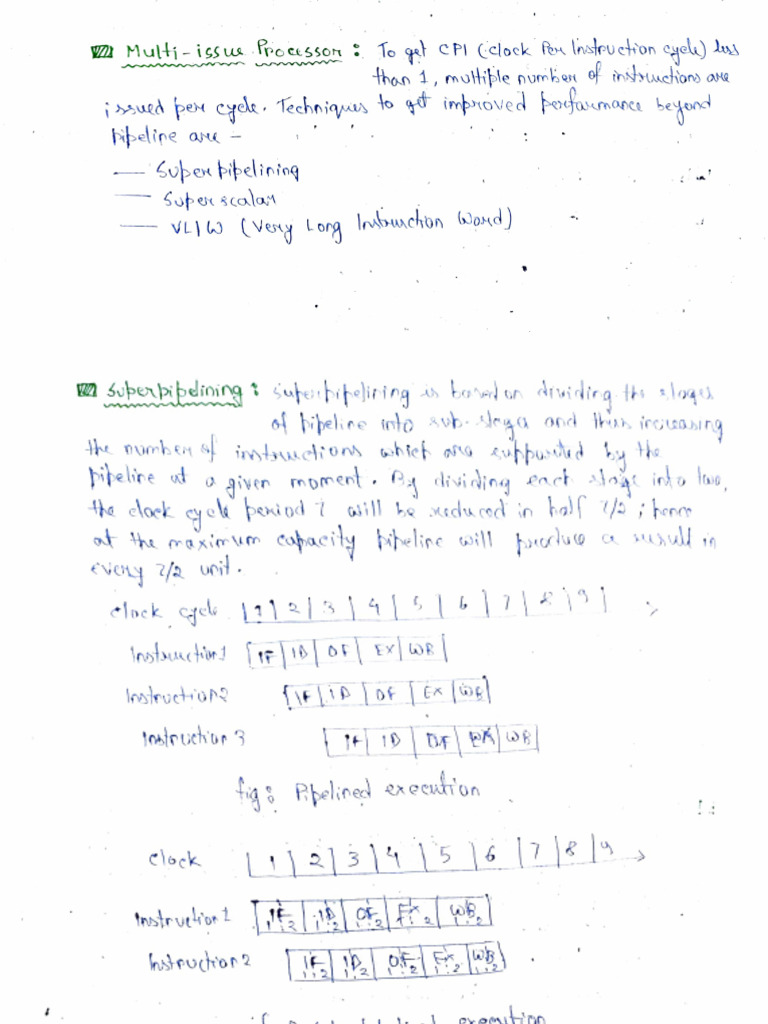 Multi-issue Processor : To get CPI (Clock Per Instruction cycle) less
than 1, multiple number of instructions are
issued per cycle. Techniques to get improved performance beyond
pipeline are –
— Superpipelining
— Super scalar
— VLIW (Very Long Instruction Word)
Superpipelining : Superpipelining is based on dividing the stages
of pipeline into sub-stages and thus increasing
the number of instructions which are supported by the
pipeline at a given moment. By dividing each stage into two,
the clock cycle period τ will be reduced in half τ/2 ; hence
at the maximum capacity pipeline will produce a result in
every τ/2 unit.
Clock cycle | 1 | 2 | 3 | 4 | 5 | 6 | 7 | 8 | 9 |
Instruction1 | IF | ID | OF | EX | WB |
Instruction2 | IF | ID | OF | EX | WB |
Instruction 3 | IF | ID | OF | EX | WB |
fig : Pipelined execution
Clock | 1 | 2 | 3 | 4 | 5 | 6 | 7 | 8 | 9
Instruction 1 | IF | ID | OF | EX | WB |
1 2 1 2 1 2 1 2 1 2
Instruction 2 | IF | ID | OF | EX | WB |
1 2 1 2 1 2 1 2 1 2
execution